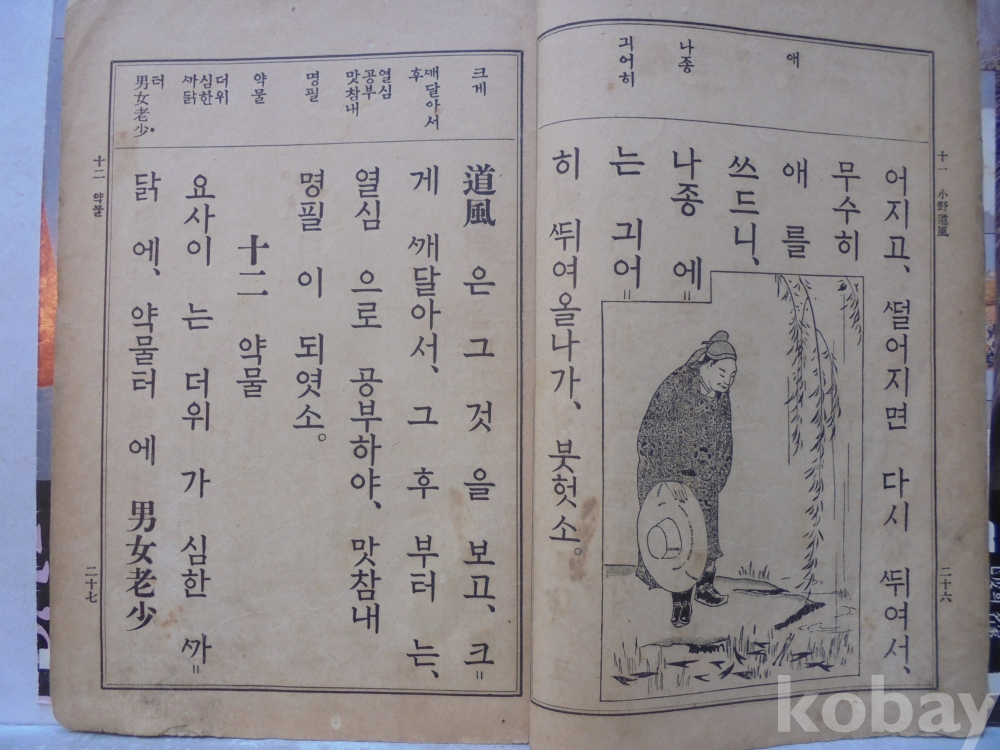 十一 小野道風
二十六
애
나종
긔어히
어지고、ᄯᅥᆯ어지면 다시 ᄯᅱ여서、
무수히
애 를
쓰드니、
나종 에=
는 긔어=
히 ᄯᅱ여올나가、붓헛소。
크게
ᄭᅢ달아서
후
열심
공부
맛참내
명필
약물
더위
심한
ᄭᅡ닭
터
男女老少
道風 은 그 것 을 보고、크=
게 ᄭᅢ달아서、그 후 부터 는、
열심 으로 공부하야、맛참내
명필 이 되엿소。
十二 약물
요사이 는 더위 가 심한 ᄭᅡ=
닭 에、약물터 에 男女老少
十二 약물
二十七
kobay